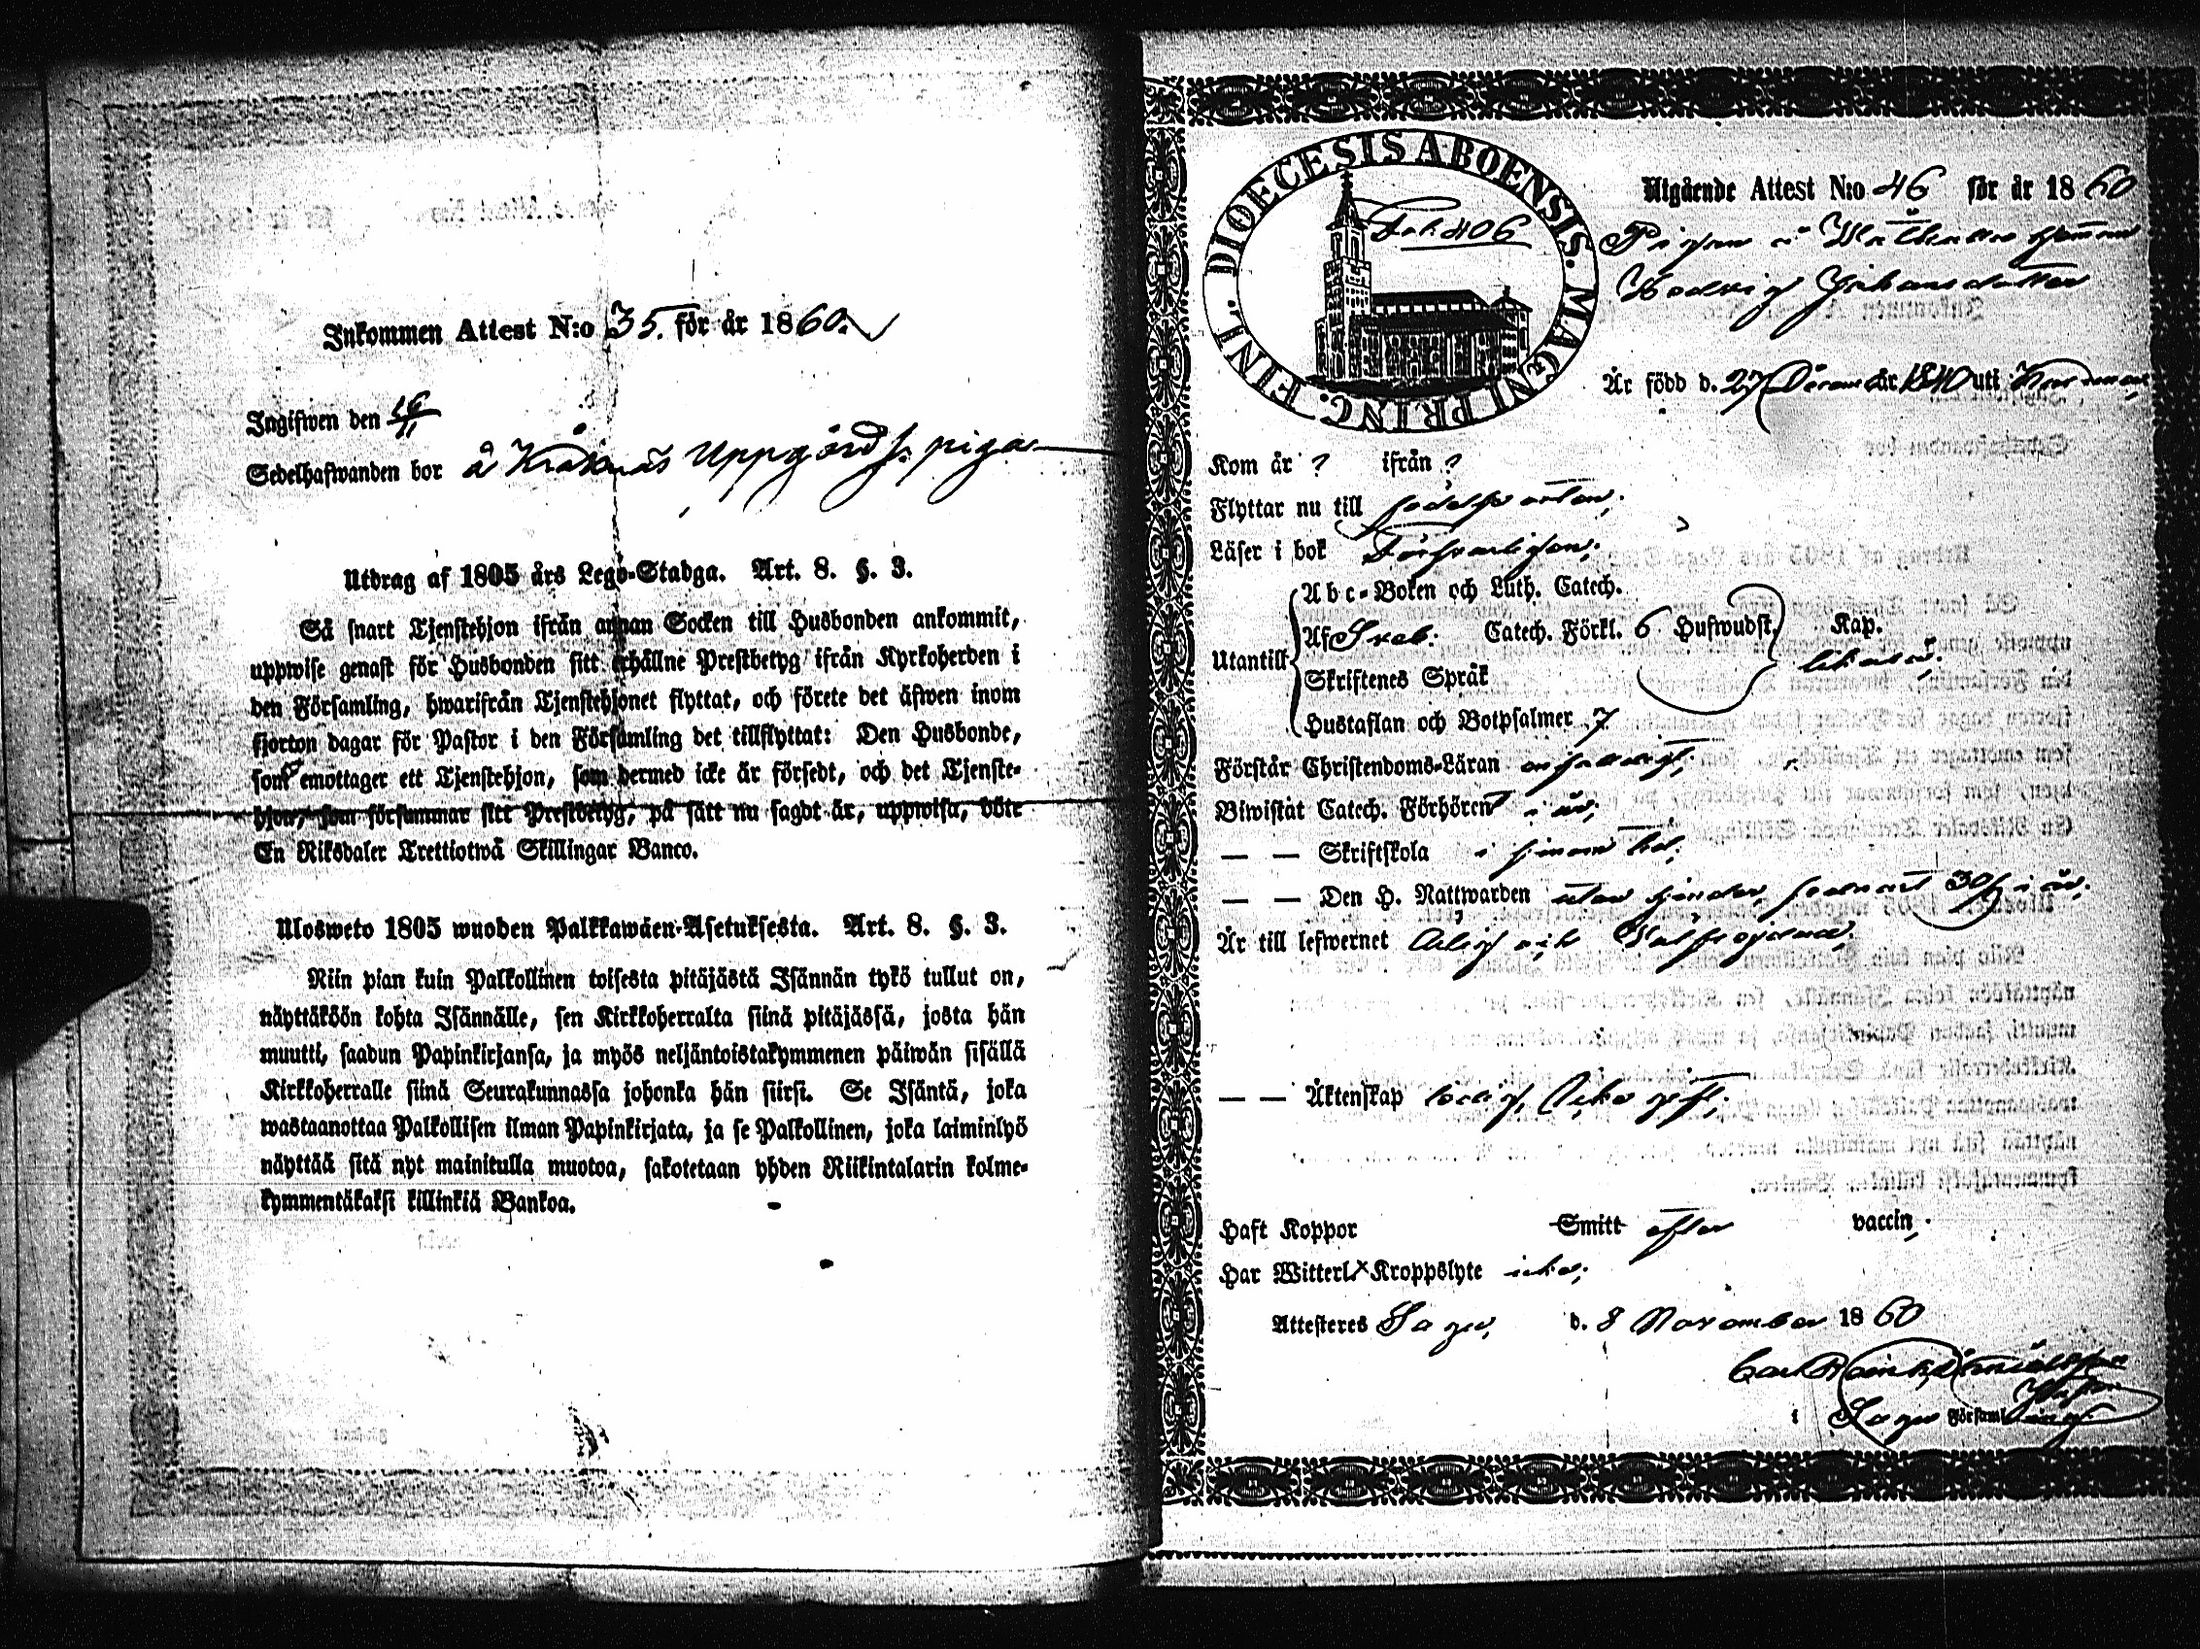 Inkommen Attest N:o 35. för år 1860.
Ingifwen den 16/11
Sedelhafwanden bor å Kråknäs Uppgård s. piga
Utdrag af 1805 års Lego-Stadga. Art. 8. §. 3.
Så snart Tjenstehjon ifrån annan Socken till Husbonden ankommit,
uppwise genast för Husbonden sitt erhållne Prestbetyg ifrån Kyrkoherden i
den Församling, hwarifrån Tjenstehjonet flyttat, och förete det äfwen inom
fjorton dagar för Pastor i den Församling det tillflyttat: Den Husbonde,
som emottager ett Tjenstehjon, som dermed icke är försedt, och det Tjenste-
hjon, som försummar sitt Prestbetyg, på sätt nu sagdt är, uppwisa, böte
En Riksdaler Trettiotwå Skillingar Banco.
Ulosweto 1805 wuoden Palkkawäen-Asetuksesta. Art. 8. §. 3.
Niin pian kuin Palkollinen toisesta pitäjästä Isännän tykö tullut on,
näyttäköön kohta Isännälle, sen Kirkkoherralta siinä pitäjässä, josta hän
muutti, saadun Papinkirjansa, ja myös neljäntoistakymmenen päiwän sisällä
Kirkkoherralle siinä Seurakunnassa johonka hän siirsi. Se Isäntä, joka
wastaanottaa Palkollisen ilman Papinkirjata, ja se Palkollinen, joka laiminlyö
näyttää sitä nyt mainitulla muotoa, sakotetaan yhden Riikintalarin kolme-
kymmentäkaksi killinkiä Bankoa.
DIOECESIS ABOENSIS. MAGNI PRINC. FINL.
Fol. 406
Utgående Attest N:o 46 för år 1860
Pigan å
Hedvig Johansdotter
Är född d. 27 December år 1840 uti
Kom år ? ifrån ?
Flyttar nu till sedelsorten;
Läser i bok Försvarligen;
Utantill
Abc-Boken och Luth. Catech.
Af Sveb. Catech. Förkl. 6 Hufwudst. Kap.
likaså;
Skriftenes Språk
Hustaflan och Botpsalmer 7
Förstår Christendoms-Läran enfaldigt;
Biwistat Catech. Förhören i år;
— — Skriftskola i sinom tid;
— — Den H. Nattwarden utan hinder, sednast 30/9 i år;
Är till lefwernet Ärlig och Välfrejdad;
— — Äktenskap ledig, Icke gift;
Haft Koppor Smitt efter vaccin,
Har Witterl. Kroppslyte icke;
Attesteres Sagu, d. 8 November 1860
Carl
i Sagu Församling.